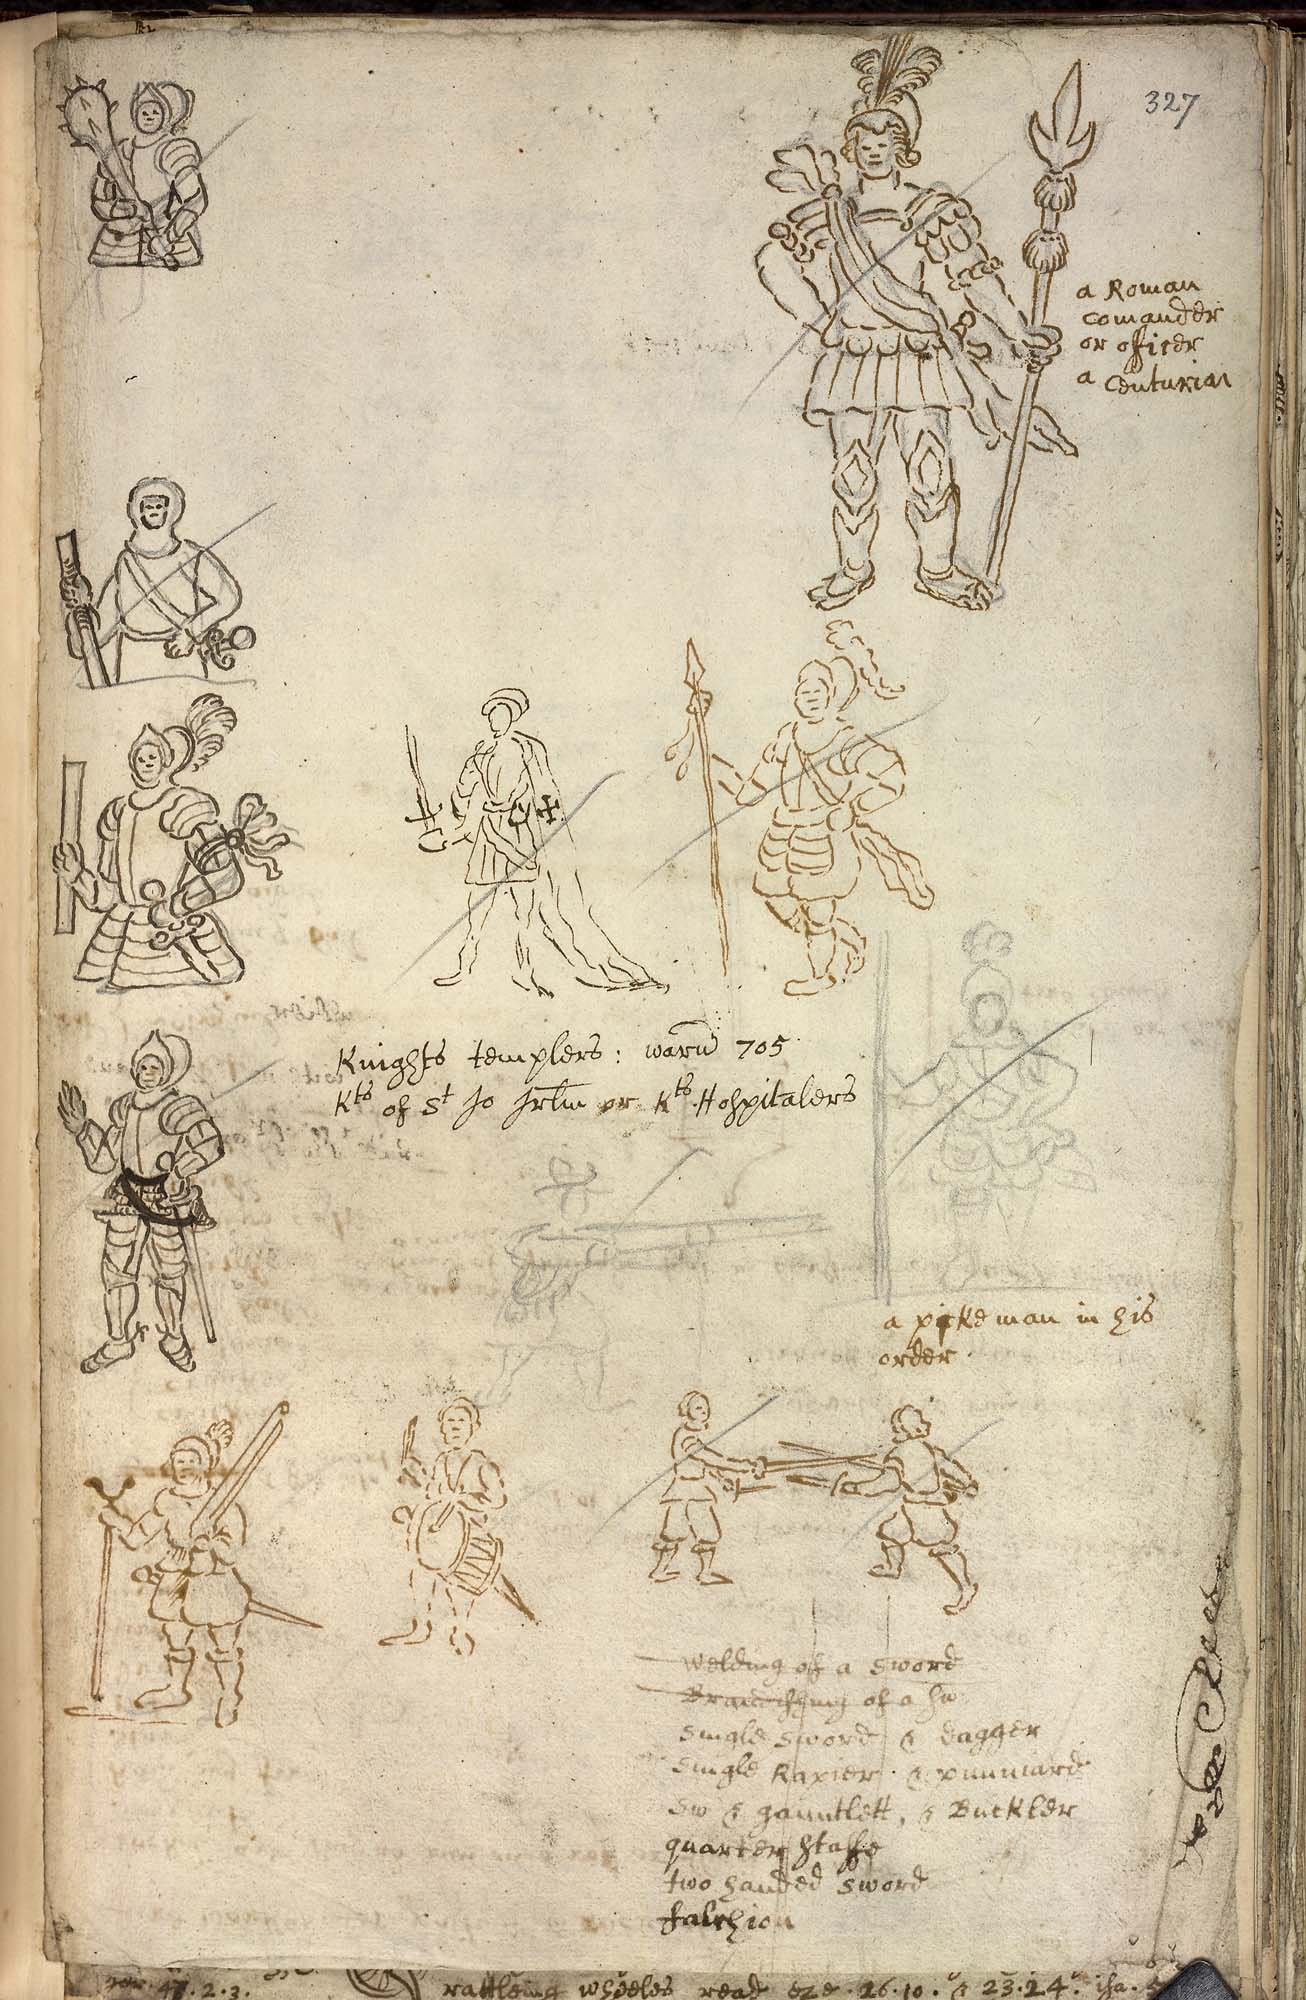 327
a Roman
comander
or officer
a Centurian
Knights templers: warw 705
Kts of St Jo Jrlm or Kts. Hospitalers
a picke man in his
order
welding of a sword
Brandishing of a sw
single sword & dagger
single Rapier & punniard
sw & gauntlett, & Buckler
quarter staffe
two handed sword
falchion
47.2.3.
rattleing wheeles read eze. 26.10. & 23.24. isa. 5